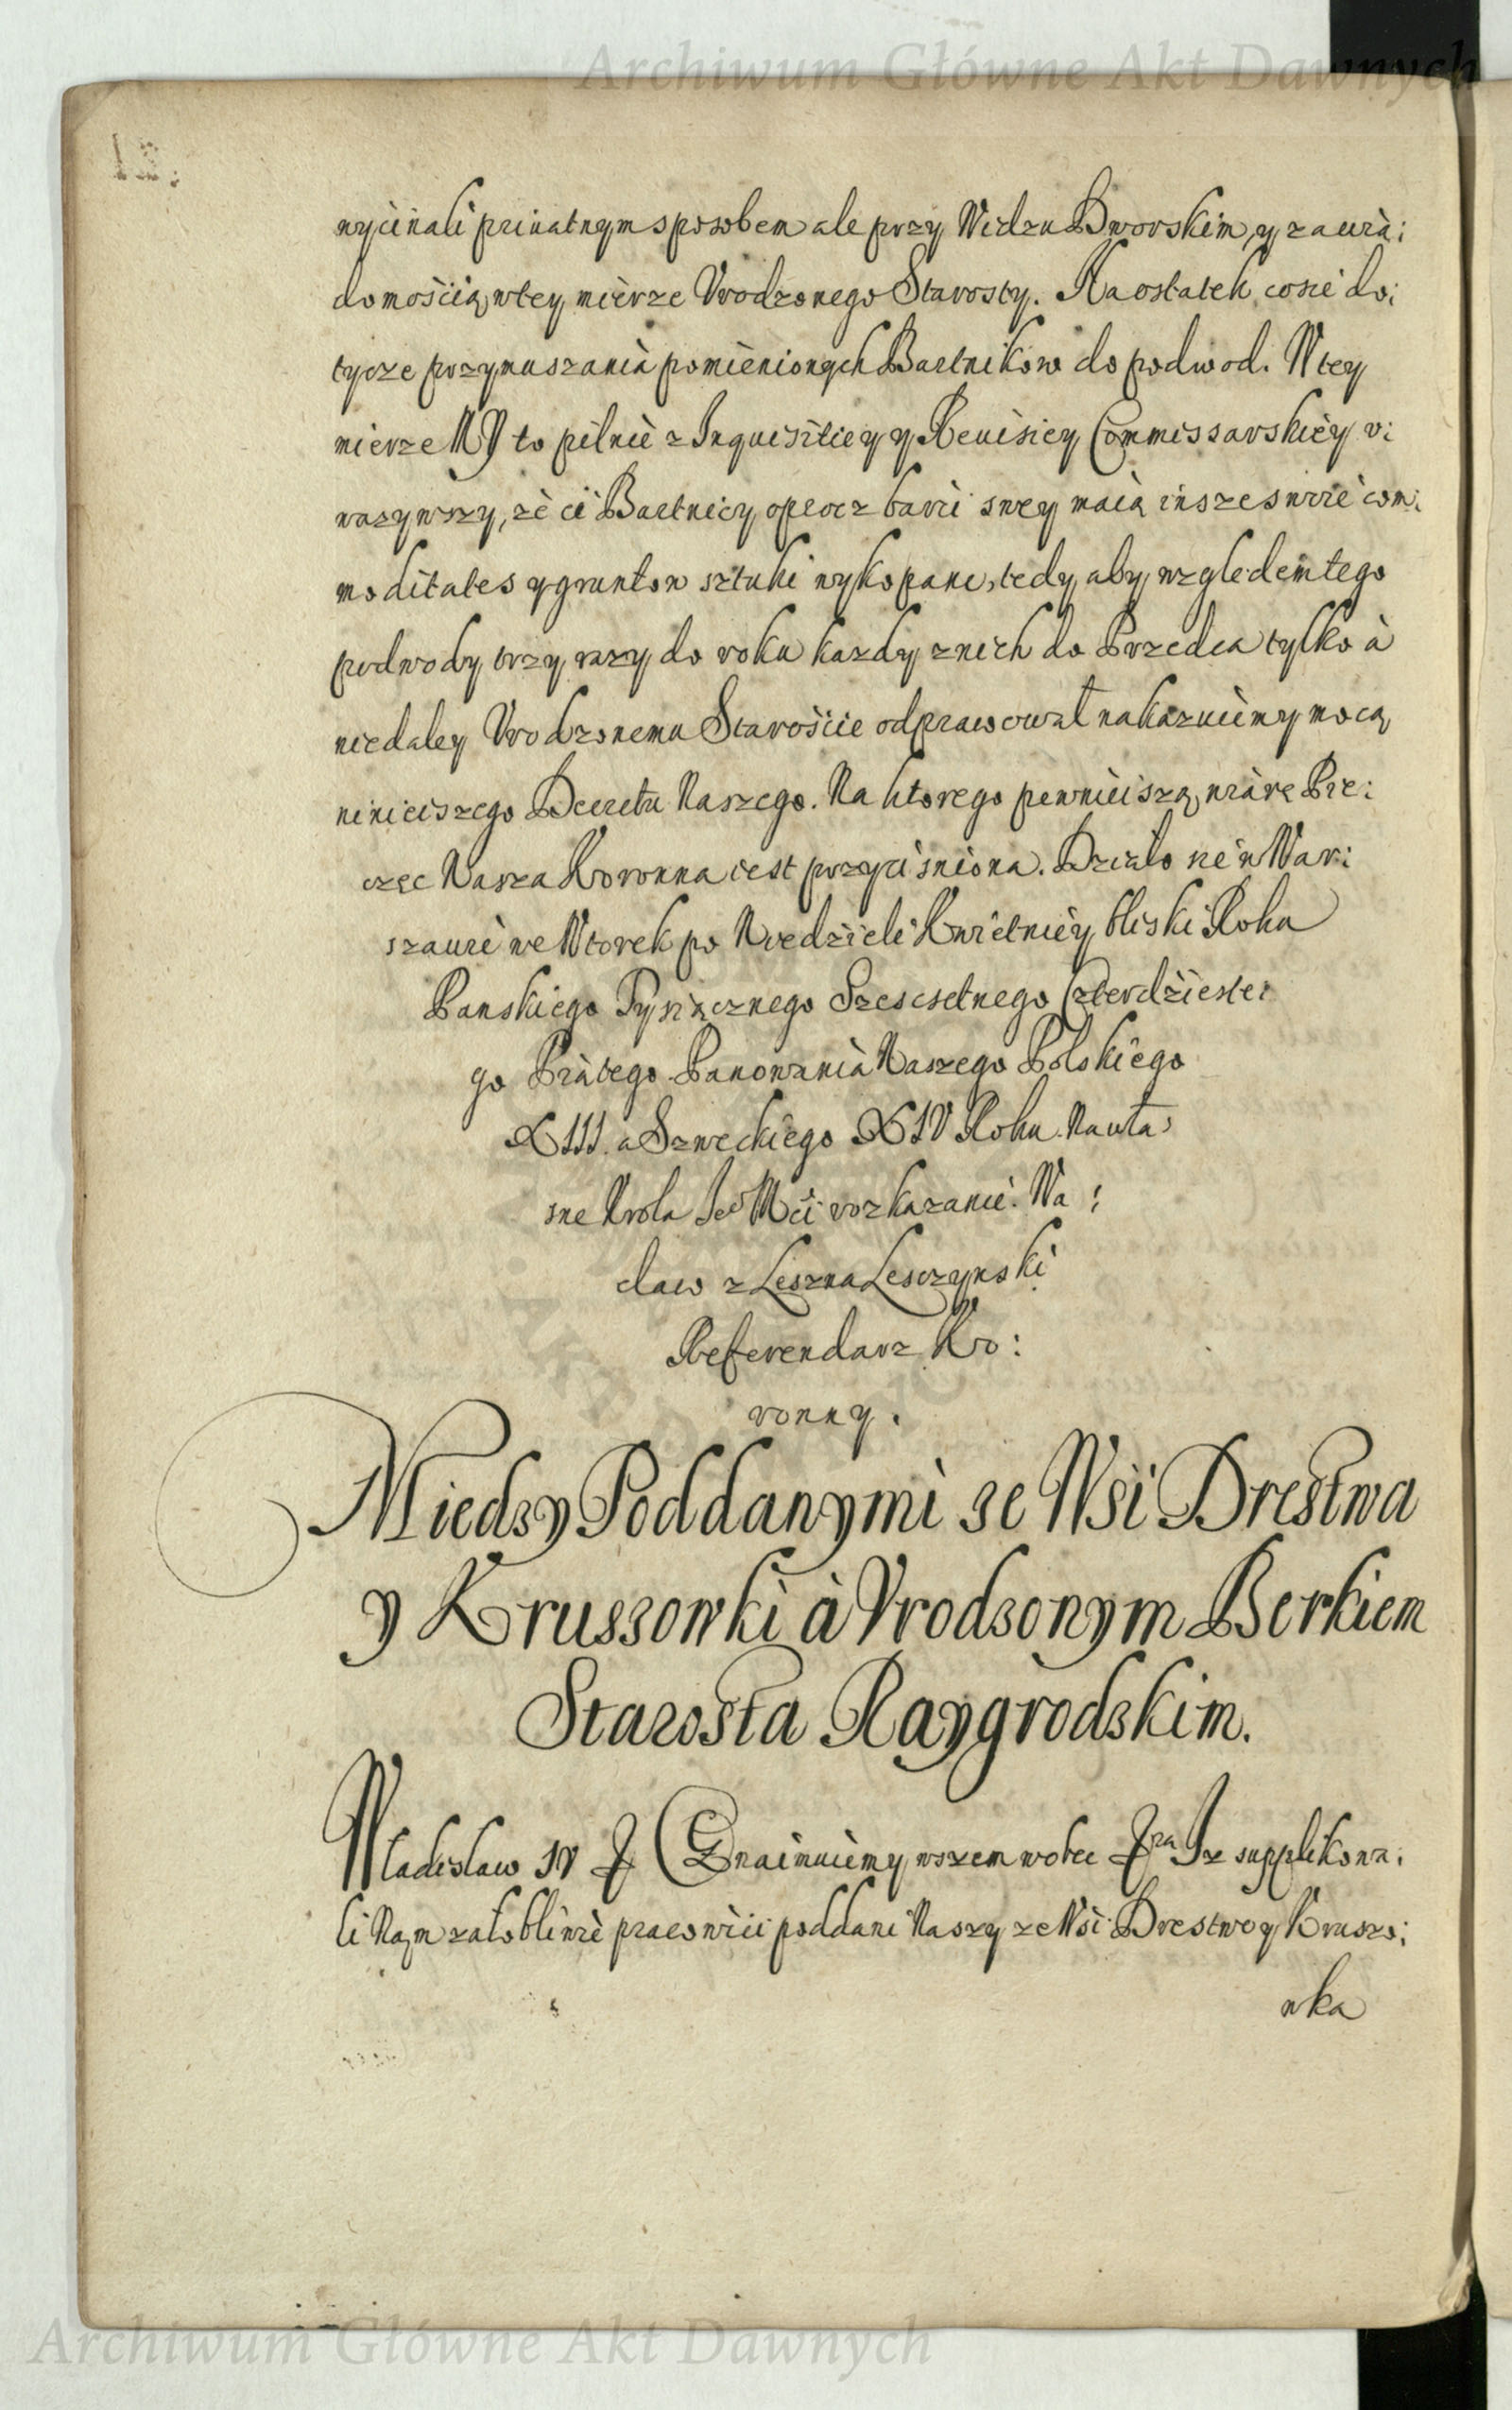 Archiwum Główne Akt Dawnych
wycinali priuatnym sposobem ale przy Widzu Dworskim, y zawia:
domością wtey mierze Vrodzonego Starosty. Naostatek cosie do:
tycze przymuszania pomienionych Bartnikow do podwod. Wtey
mierze MY to pilnie z Inquisitiey y Reuisiey Commissarskiey v:
wazywszy, ze ci Bartnicy oprocz barci swey maia insze swoie com:
moditates y gruntow sztuki wykopane, tedy aby wzgledem tego
podwody trzy razy do roku kazdy znich do Przedca tylko à
niedaley Vrodzonemu Starosćie odprawował nakazuiemy mocą
ninieiszego Decretu Naszego. Na ktorego pewnieiszą wiarę Pie:
częc Nasza Koronna iest przycisniona. Działo sie w War:
szawie we Wtorek po Niedzieli Kwietniey bliski Roku
Panskiego Tysiącznego Szescsetnego Czterdzieste:
go Piątego Panowania Naszego Polskiego
XIII. a Szweckiego XIV Roku. Na wła:
sne Krola Jeo Mci rozkazanie. Wa:
claw z Leszna Lesczynski
Referendarz Ko:
ronny.
Miedzy Poddanymi ze Wsi Drestwa
y Kruszowki à Vrodzonym Berkiem
Starosta Raygrodskim.
Wladislaw IV &c Oznaimuiemy wszem wobec &ra Iz supplikowa:
li Nam załobliwie pracowici poddani Naszy ze Wsi Drestwo y Kruszo:
wka
Archiwum Główne Akt Dawnych